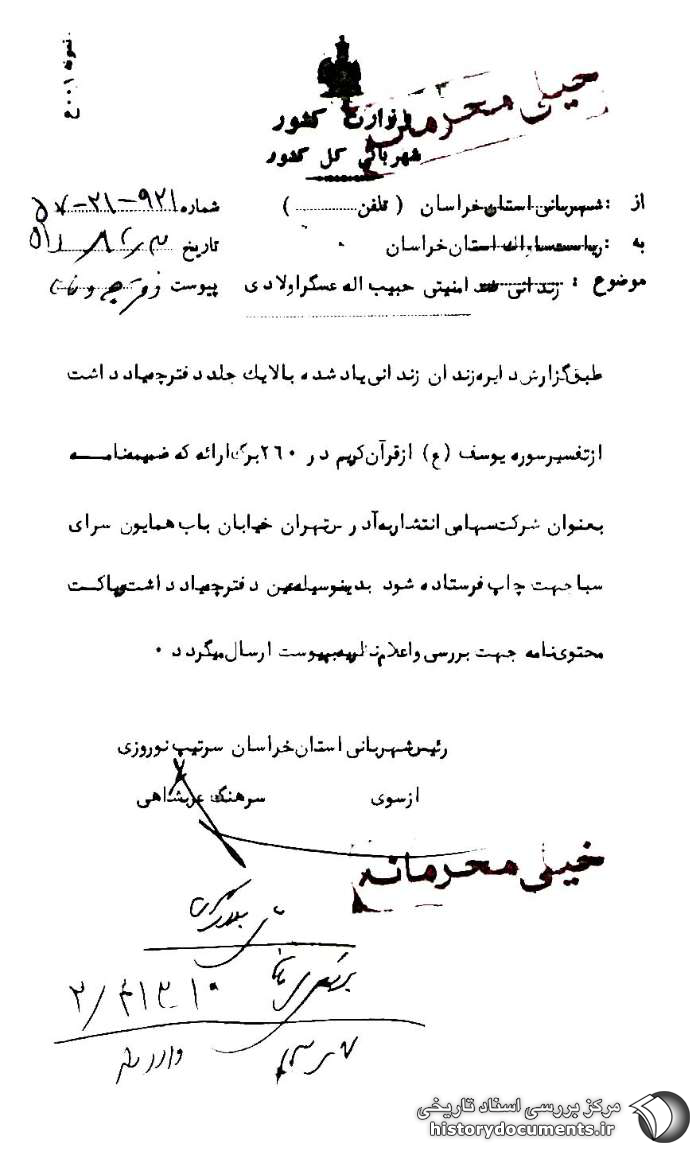 نمونه ۴۰۰۱
خیلی محرمانه
وزارت کشور
شهربانی کل کشور
از : شهربانی استان خراسان ( تلفن ............ )
شماره ۹۲۱-۲۱-۵۷
به : ریاست ساواک استان خراسان
تاریخ
موضوع : زندانی ضد امنیتی حبیب اله عسگراولادی
پیوست
طبق گزارش دایره زندان زندانی یاد شده بالا یک جلد دفترچه یادداشت
از تفسیر سوره یوسف (ع) از قرآن کریم در ۲۶۰ برگ ارائه که ضمیمه نامه
بعنوان شرکت سهامی انتشار به آدرس تهران خیابان باب همایون سرای
سبا جهت چاپ فرستاده شود بدینوسیله عین دفترچه یادداشت و پاکت
محتوی نامه جهت بررسی و اعلام نظریه به پیوست ارسال میگردد ۰
رئیس شهربانی استان خراسان سرتیپ نوروزی
از سوی سرهنگ عربشاهی
خیلی محرمانه
مرکز بررسی اسناد تاریخی
historydocuments.ir